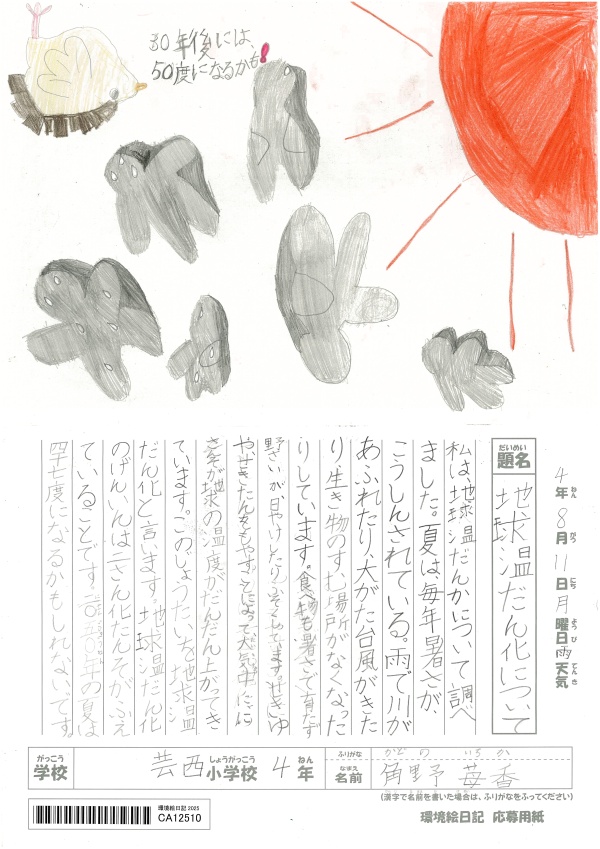 30年後には、
50度になるかも!
4年8月11日月曜日雨天気
ねん がつ にち ようび てんき
だいめい
題名
地球温だん化について
私は、地球温だんかについて調べ
ました。夏は、毎年暑さが、
こうしんされている。雨で川が
あふれたり、大がた台風がきた
り生き物のすむ場所がなくなった
りしています。食べ物も暑さで育たず
野さいが、日やけしたり
や、せきたんをもやすことによって大気中に、に
地球の温度がだんだん上がってき
ています。このじょうたいを地球温
だん化と言います。地球温だん化
のげんいんは二さん化たんそが、ふえ
ていることです!二〇五〇年の夏は
四十七度になるかもしれない、です
がっこう
学校
芸西
しょうがっこう
小学校
4
ねん
年
ふりがな
かどの いちか
なまえ
名前
角野 苺香
(漢字で名前を書いた場合は、ふりがなをふってください)
環境絵日記 2025
CA12510
環境絵日記 応募用紙